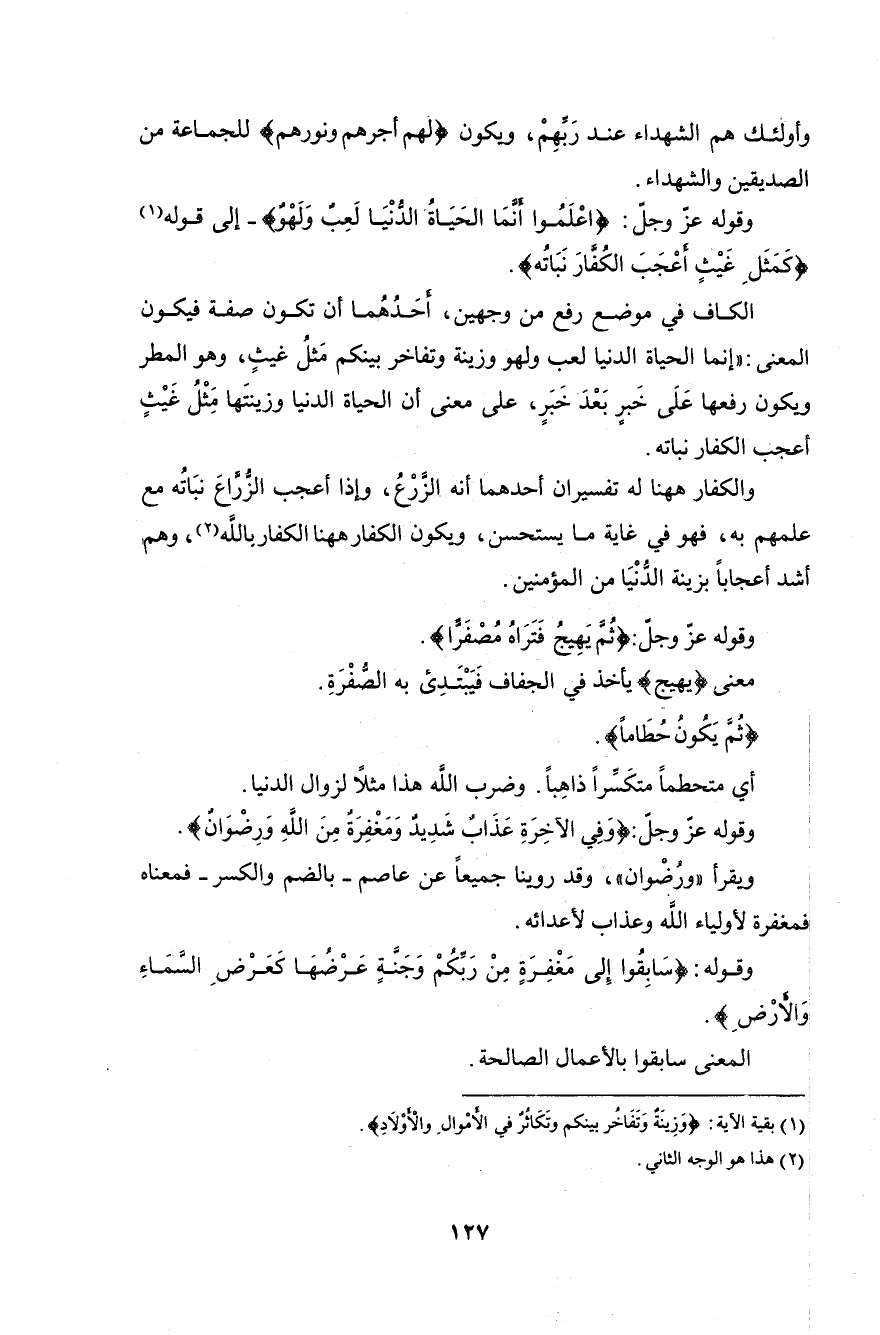 وأولئك هم الشهداء عند رَبِّهِمْ، ويكون ﴿لهم أجرهم ونورهم﴾ للجماعة من
الصديقين والشهداء.
وقوله عزّ وجلّ: ﴿اعْلَمُوا أَنَّمَا الحَيَاةُ الدُّنْيَا لَعِبٌ وَلَهْوٌ﴾ - إلى قوله(١)
﴿كَمَثَلِ غَيْثٍ أَعْجَبَ الكُفَّارَ نَبَاتُه﴾.
الكاف في موضع رفع من وجهين، أَحَدُهُما أن تكون صفة فيكون
المعنى: «إنما الحياة الدنيا لعب ولهو وزينة وتفاخر بينكم مَثلُ غيثٍ، وهو المطر
ويكون رفعها عَلَى خَبرٍ بَعْدَ خَبَرٍ، على معنى أن الحياة الدنيا وزينتَها مِثْلُ غَيْثٍ
أعجب الكفار نباته.
والكفار ههنا له تفسيران أحدهما أنه الزَّرْعُ، وإذا أعجب الزُّرَّاعَ نَبَاتُه مع
علمهم به، فهو في غاية ما يستحسن، ويكون الكفار ههنا الكفار باللَّه(٢)، وهم
أشد أعجاباً بزينة الدُّنْيَا من المؤمنين.
وقوله عزّ وجلّ: ﴿ثُمَّ يَهِيجُ فَتَرَاهُ مُصْفَرًّا﴾.
معنى ﴿يهيج﴾ يأخذ في الجفاف فَيَبْتَدِئُ به الصُّفْرَةِ.
﴿ثُمَّ يَكُونُ حُطَاماً﴾.
أي متحطماً متكَسِّراً ذاهِباً. وضرب اللَّه هذا مثلًا لزوال الدنيا.
وقوله عزّ وجلّ: ﴿وَفِي الآخِرَةِ عَذَابٌ شَدِيدٌ وَمَغْفِرَةٌ مِنَ اللَّهِ وَرِضْوَانٌ﴾.
ويقرأ «ورُضْوان»، وقد روينا جميعاً عن عاصم - بالضم والكسر - فمعناه
فمغفرة لأولياء اللَّه وعذاب لأعدائه.
وقوله: ﴿سَابِقُوا إِلى مَغْفِرَةٍ مِنْ رَبِّكُمْ وَجَنَّةٍ عَرْضُهَا كَعَرْضِ السَّمَاءِ
وَالأَرْضِ﴾.
المعنى سابقوا بالأعمال الصالحة.
(١) بقية الآية: ﴿وَزِينَةٌ وَتَفَاخُر بينكم وتَكَاثُرٌ في الأَمْوالِ والْأَوْلَادِ﴾.
(٢) هذا هو الوجه الثاني.
١٢٧